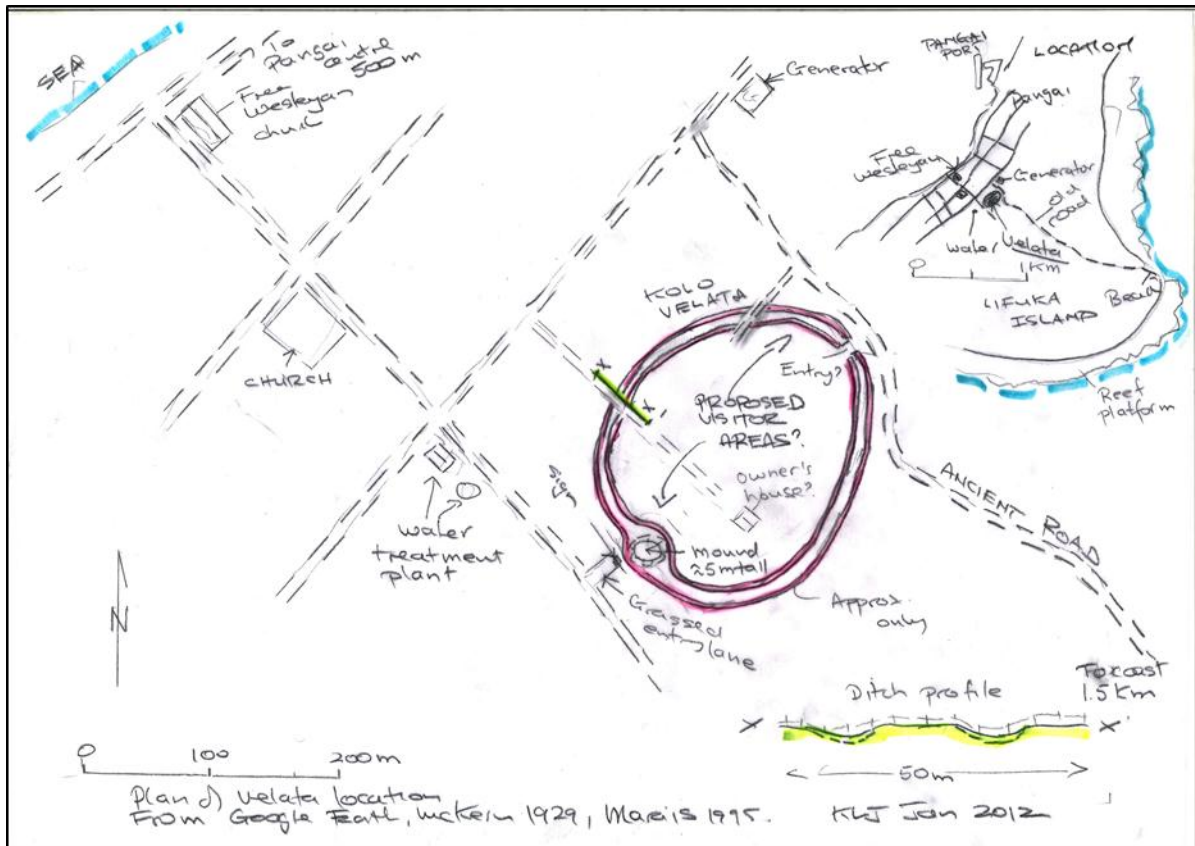 SEA
To
Pangai
centre
500 m
Free
Wesleyan
church
Generator
G
PANGAI
PORT
LOCATION
Pangai
Free
Wesleyan
Generator
old
road
water
Velata
0 1 Km
LIFUKA
ISLAND
Reef
platform
KOLO
VELATA
Entry?
PROPOSED
VISITOR
AREAS?
owner's
house?
X
X'
CHURCH
Sign
water
treatment
plant
mound
≈5m tall
Grassed
entry lane
Approx.
only
ANCIENT ROAD
To coast
1.5 Km
N
Ditch profile
X X'
50m
0 100 200 m
Plan of Velata location
From Google Earth, McKern 1929, Marais 1995. KLJ Jan 2012